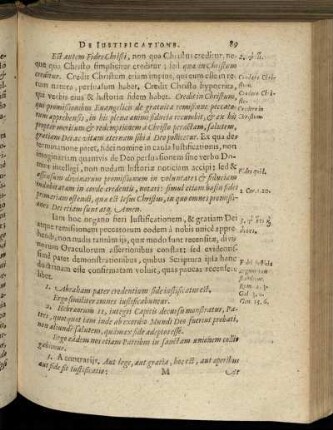 DE IUSTIFICATIONE. 89
Est autem Fides Christi, non quo Christus creditur, ne-
que quo Christo simpliciter creditur; sed qua in Christum
creditur. Credit Christum etiam impius, qui eum esse in re-
rum natura, persuasum habet. Credit Christo hypocrita,
qui verbis eius & historiæ fidem habet. Credit in Christum,
qui promissionem Euangelicam de gratuita remissione peccato-
rum apprehensis, in his plena animi fiducia recumbit, & ex his
propter meritum & redemptionem à Christo præstitam, salutem,
gratiam Dei ac vitam æternam sibi à Deo pollicetur. Ex qua de-
terminatione patet, fidei nomine in causa Iustificationis, non
imaginariam quamvis de Deo persuasionem sine verbo Do-
mini intelligi, non nudam historiæ notitiam accipi: sed &
assensum divinarum promissionum in voluntate; & fiduciam
indubitatam in corde credentis, notari: simul etiam basin fidei
primariam ostendi, qua est Iesus Christus, in quo omnes promissio-
nes Dei etiam sunt atq. Amen.
Iam hoc negatio fieri Iustificationem, & gratiam Dei
atque remissionem peccatorum eodem à nobis unicè appre-
hendi, non nuda tantùm ijs, quæ modo fuere recensita, divi-
norum Oraculorum assertionibus constat: sed evidentis-
simis patet demonstrationibus, quibus Scriptura ipsa hanc
doctrinam esse confirmatam voluit, quas paucas recensere
libet.
1. Abraham pater credentium fide iustificatus est.
Ergo similiter omnes iustificabuntur.
2. Hebræorum 11, integri Capitis decursu monstratur, Pa-
tres, quotquot iam inde ab exordio Mundi Deo fuerint probati,
non aliunde salutem, quàm ex fide adeptos esse.
Ergo eâdem nos etiam Patribus in sanctam unionem colli-
gabimur.
3. A contrarijs. Aut lege, aut gratia, hoc est, aut operibus
aut fide sit iustificatio:
M
Fides quid.
2 Cor. 1. 20.
Rom. 4. 3.
Gal. 3. 6.
Gen. 15. 6.